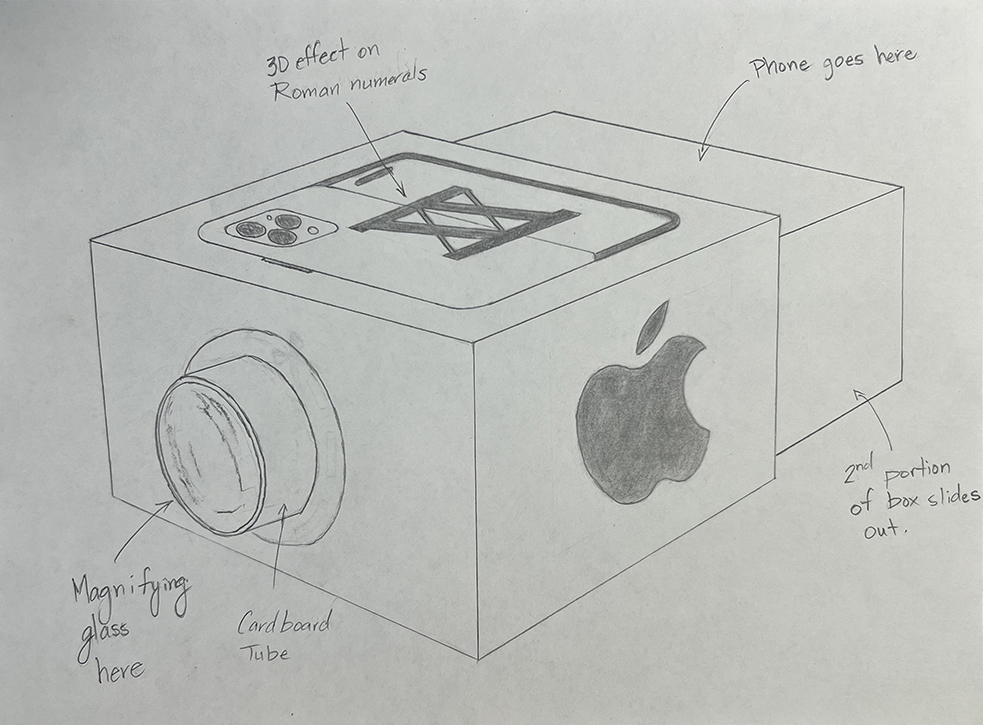 3D effect on
Roman numerals
Phone goes here
2nd portion
of box slides
out.
Magnifying
glass
here
Cardboard
Tube